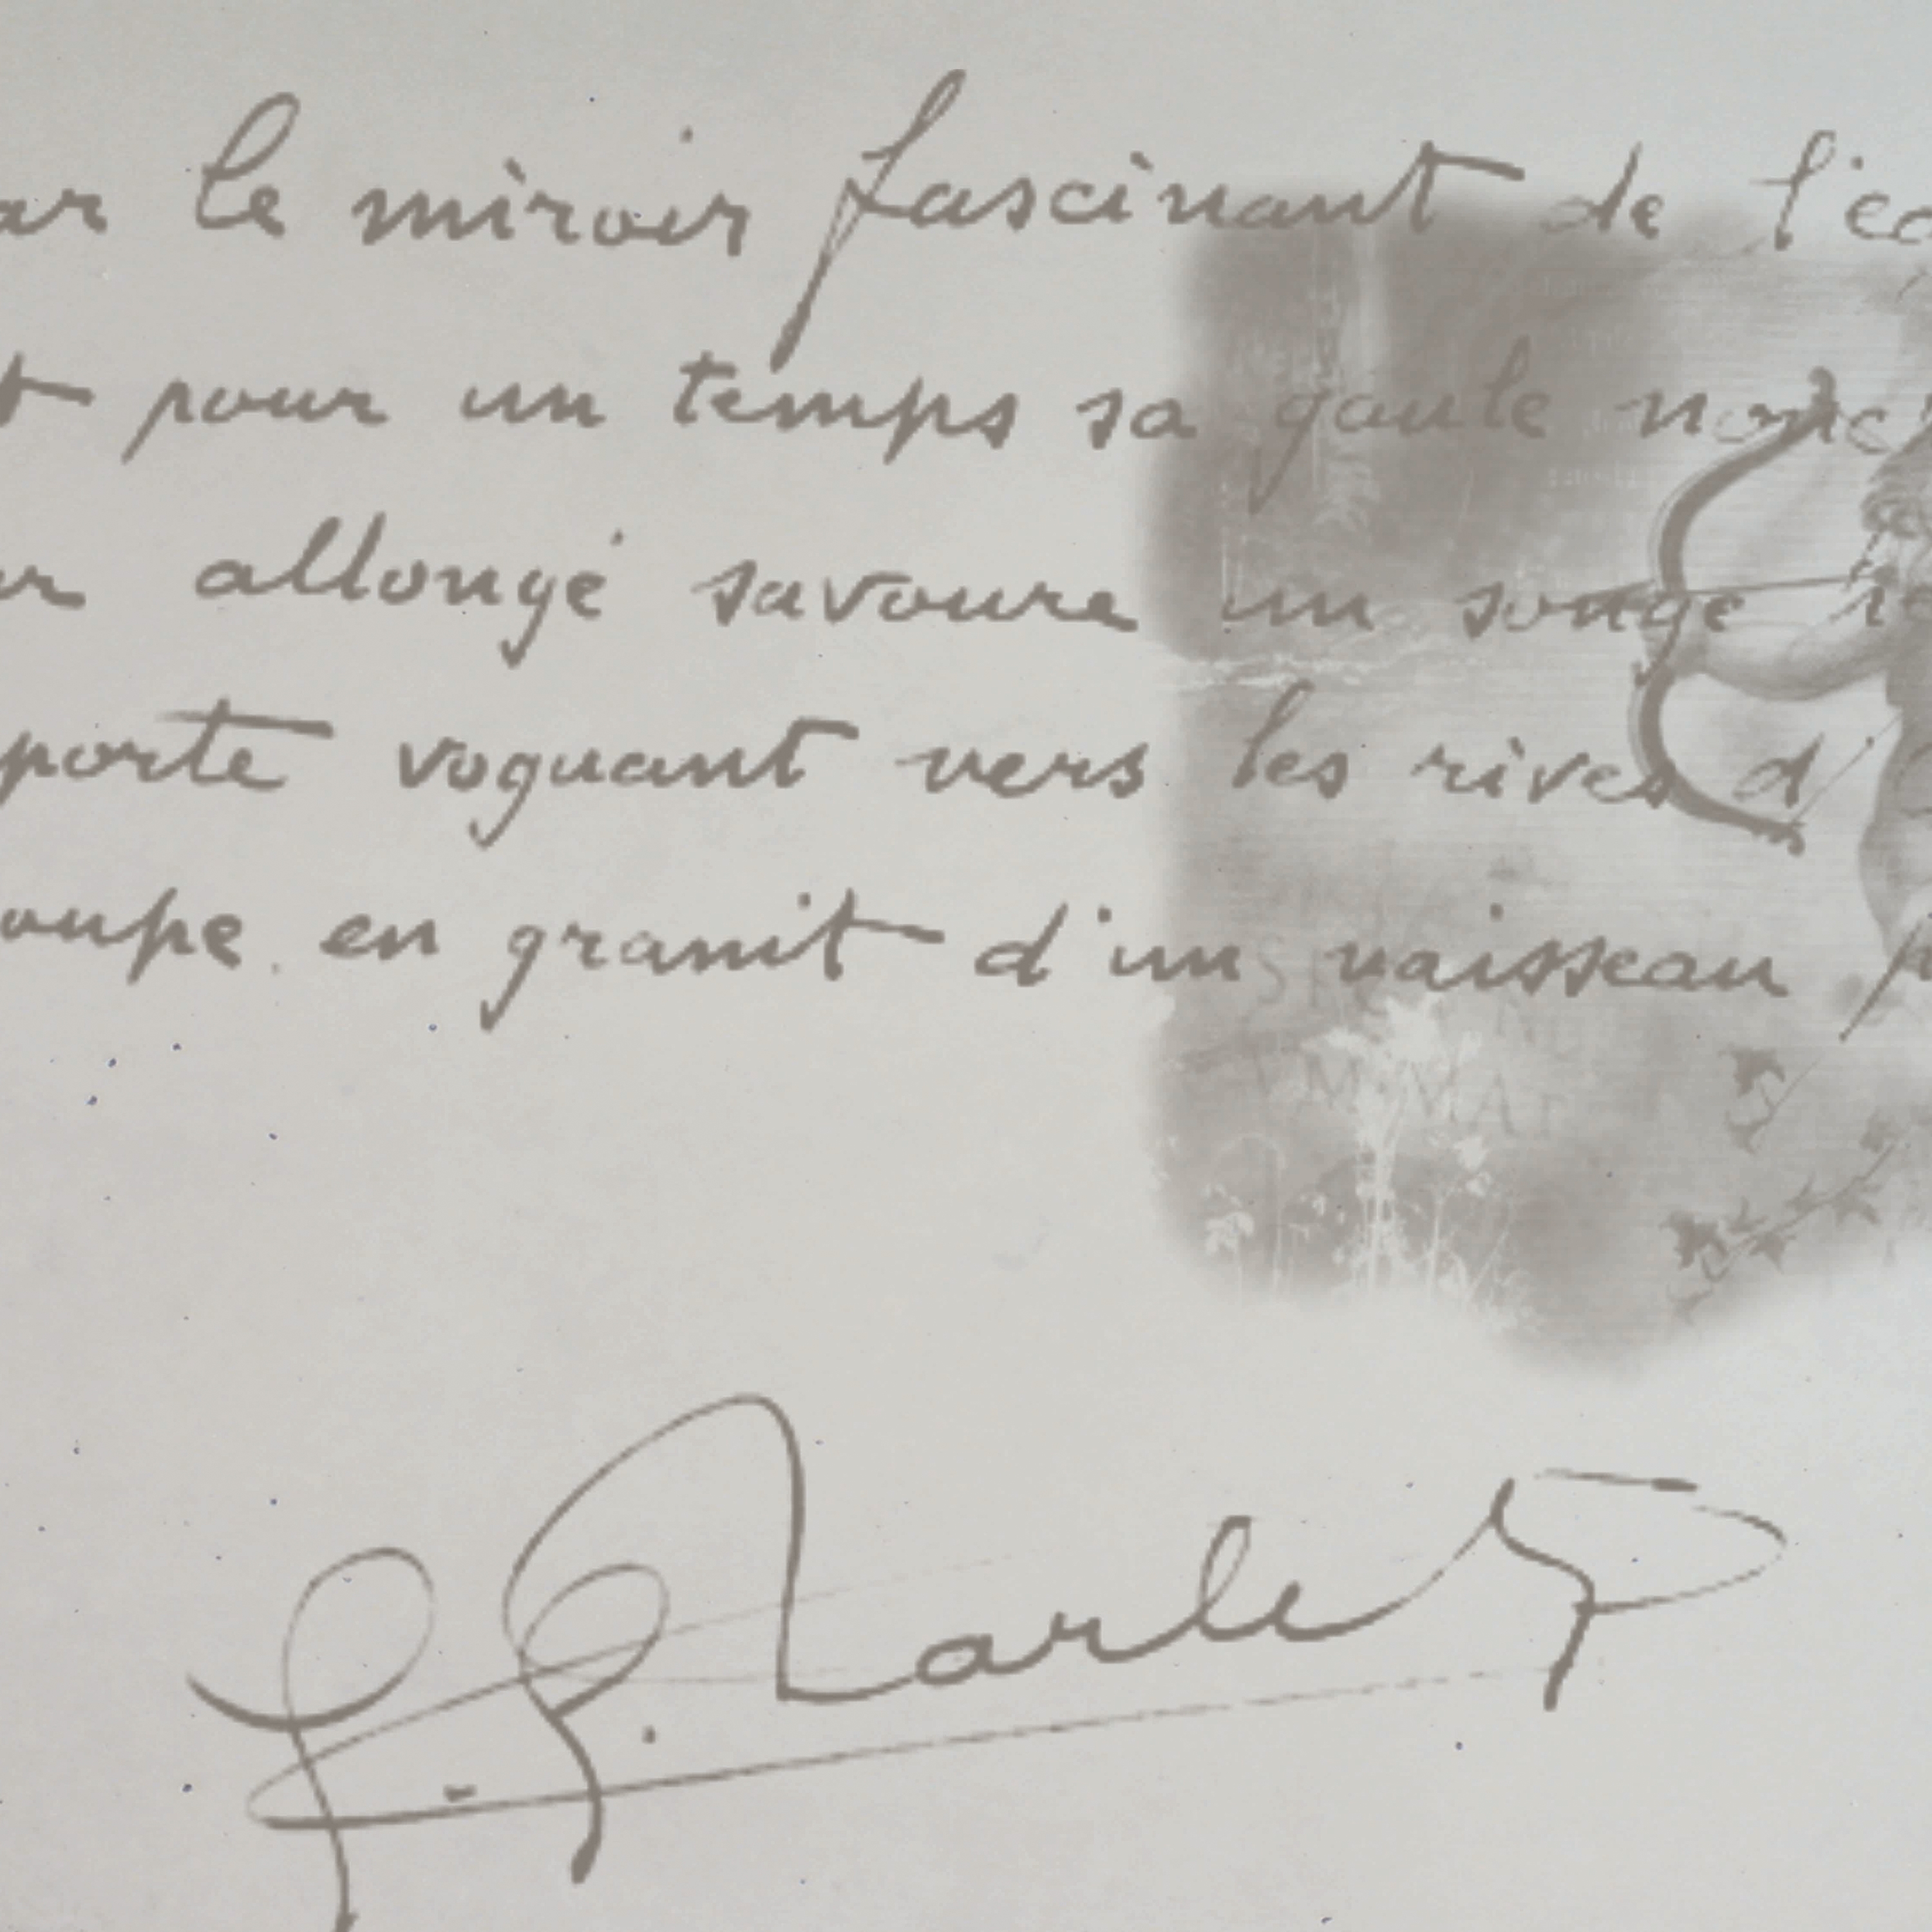 ar le miroir fascinant de l'ea
t pour un temps sa gaule nonc
ur allongé savoure un songe
porte voguant vers les rives d'
oupe en granit d'un vaisseau p